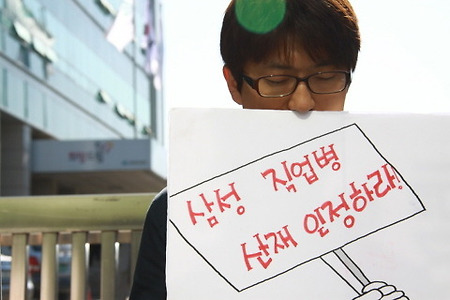 삼성 직업병
산재 인정하라!